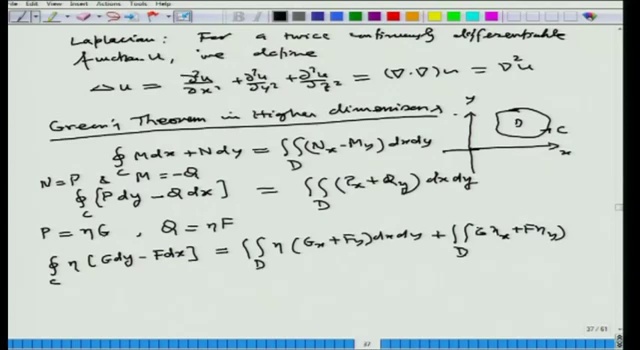 File Edit View Insert Actions Tools Help
Laplacian: For a twice continuously differentiable
function u, we define
Δu = ∂²u/∂x² + ∂²u/∂y² + ∂²u/∂z² = (∇·∇)u = ∇²u
Green's Theorem in Higher dimensions
∮_C Mdx + Ndy = ∬_D (N_x - M_y) dxdy
N = P & M = -Q
∮_C [Pdy - Qdx] = ∬_D (P_x + Q_y) dxdy
P = ηG , Q = ηF
∮_C η [Gdy - Fdx] = ∬_D η (G_x + F_y) dxdy + ∬_D (Gη_x + Fη_y)
y
D
C
x
37 / 61
37